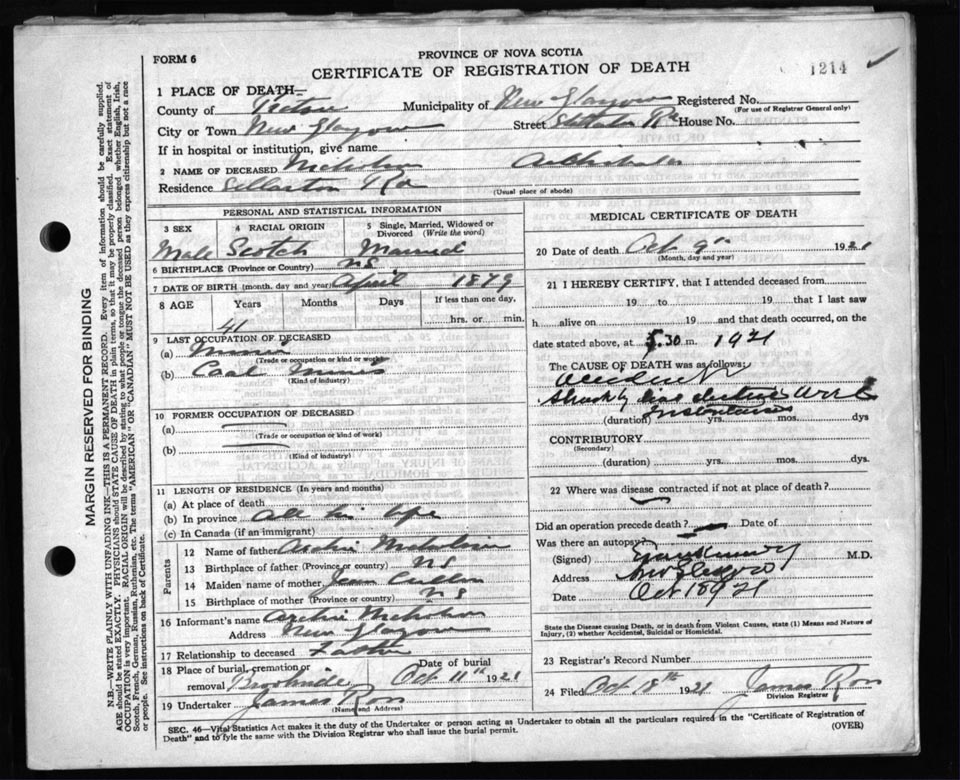 FORM 6
PROVINCE OF NOVA SCOTIA
CERTIFICATE OF REGISTRATION OF DEATH
1214
1 PLACE OF DEATH—
County of Pictou Municipality of New Glasgow Registered No.
(For use of Registrar General only)
City or Town New Glasgow Street Stellarton Rd House No.
If in hospital or institution, give name
2 NAME OF DECEASED Nicholson Archibald
Residence Stellarton Rd
(Usual place of abode)
PERSONAL AND STATISTICAL INFORMATION
3 SEX 4 RACIAL ORIGIN 5 Single, Married, Widowed or Divorced (Write the word)
Male Scotch Married
6 BIRTHPLACE (Province or Country) NS
7 DATE OF BIRTH (month, day and year) April 1879
8 AGE Years Months Days If less than one day,
41 hrs. or min.
9 LAST OCCUPATION OF DECEASED
(a) Miner
(Trade or occupation or kind of work)
(b) Coal Mines
(Kind of industry)
10 FORMER OCCUPATION OF DECEASED
(a)
(Trade or occupation or kind of work)
(b)
(Kind of industry)
11 LENGTH OF RESIDENCE (In years and months)
(a) At place of death
(b) In province All his life
(c) In Canada (if an immigrant)
Parents
12 Name of father Archie Nicholson
13 Birthplace of father (Province or country) NS
14 Maiden name of mother Jean
15 Birthplace of mother (Province or country) NS
16 Informant's name Archie Nicholson
Address New Glasgow
17 Relationship to deceased Father
18 Place of burial, cremation or removal Date of burial
Brookside Oct 11th 1921
19 Undertaker James Ross
(Name and Address)
MEDICAL CERTIFICATE OF DEATH
20 Date of death Oct 9th 1921
(Month, day and year)
21 I HEREBY CERTIFY, that I attended deceased from
19 to 19 that I last saw
h alive on 19 and that death occurred, on the
date stated above, at 5.30 m. 1921
The CAUSE OF DEATH was as follows:
Accident
Struck by live electric wire
Instantaneous
(duration) yrs. mos. dys
CONTRIBUTORY
(Secondary)
(duration) yrs. mos. dys.
22 Where was disease contracted if not at place of death?
Did an operation precede death? Date of
Was there an autopsy?
(Signed) M.D.
Address New Glasgow
Date Oct 1921
State the Disease causing Death, or in death from Violent Causes, state (1) Means and Nature of
Injury, (2) whether Accidental, Suicidal or Homicidal.
23 Registrar's Record Number
24 Filed Oct 18th 1921 James Ross
Division Registrar
SEC. 46—Vital Statistics Act makes it the duty of the Undertaker or person acting as Undertaker to obtain all the particulars required in the "Certificate of Registration of
Death" and to fyle the same with the Division Registrar who shall issue the burial permit.
(OVER)
MARGIN RESERVED FOR BINDING
N.B.—WRITE PLAINLY WITH UNFADING INK—THIS IS A PERMANENT RECORD. Every item of information should be carefully supplied.
AGE should be stated EXACTLY. PHYSICIANS should STATE CAUSE OF DEATH in plain terms, so that it may be properly classified. Exact statement of
OCCUPATION is very important. RACIAL ORIGIN will be described by stating to what people or tongue the deceased person belonged whether English, Irish,
Scotch, French, German, Russian, Ruthenian, etc. The terms "AMERICAN" OR "CANADIAN" MUST NOT BE USED as they express citizenship but not a race
or people. See instructions on back of Certificate.